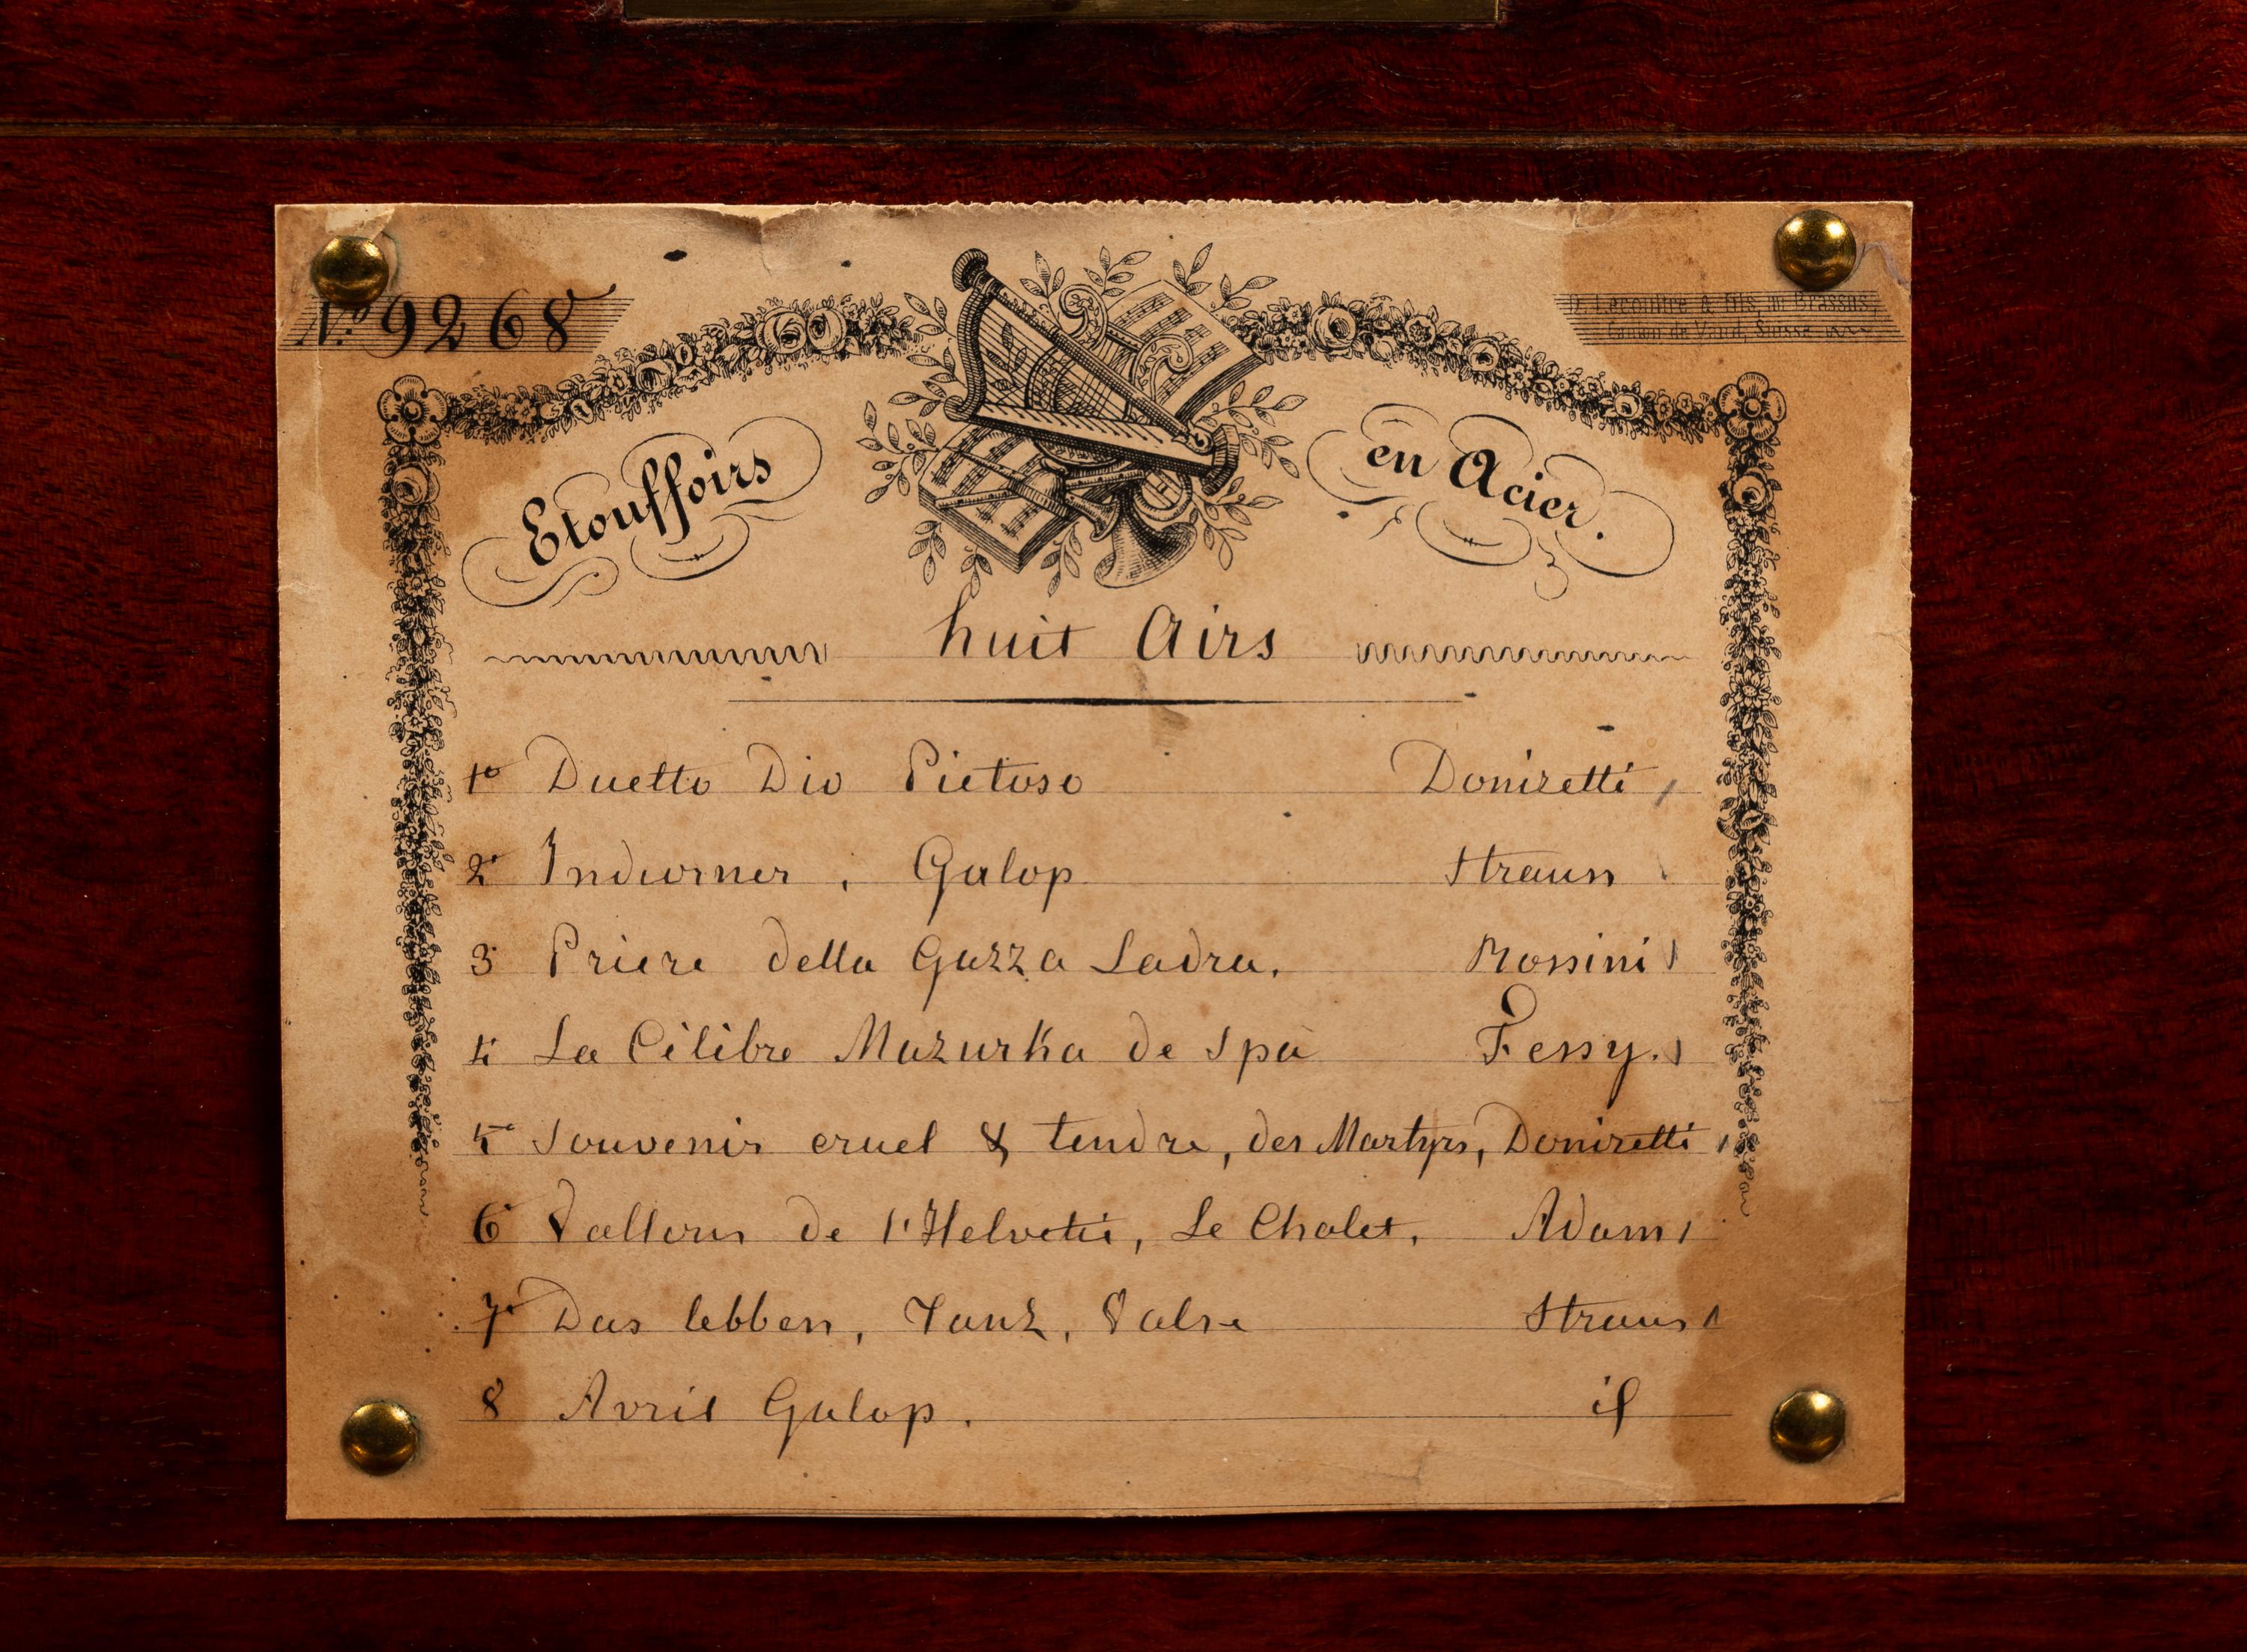 N.º 9268
D. Lecoultre & fils, au Brassus,
Canton de Vaud, Suisse
Etouffoirs en Acier.
huit Airs
1º Duetto Dio Pietoso Donizetti
2º Galop Strauss
3 Priere della Gazza Ladra. Rossini
4 La Célibre Mazurka de Spa Fessy.
5º Souvenir cruel & tendre, des Martyrs, Donizetti
6 Vallons de l'Helvetie, Le Chalet, Adam
7º Das lebben, Tanz, Valse Strauss
8 Avril Galop. id